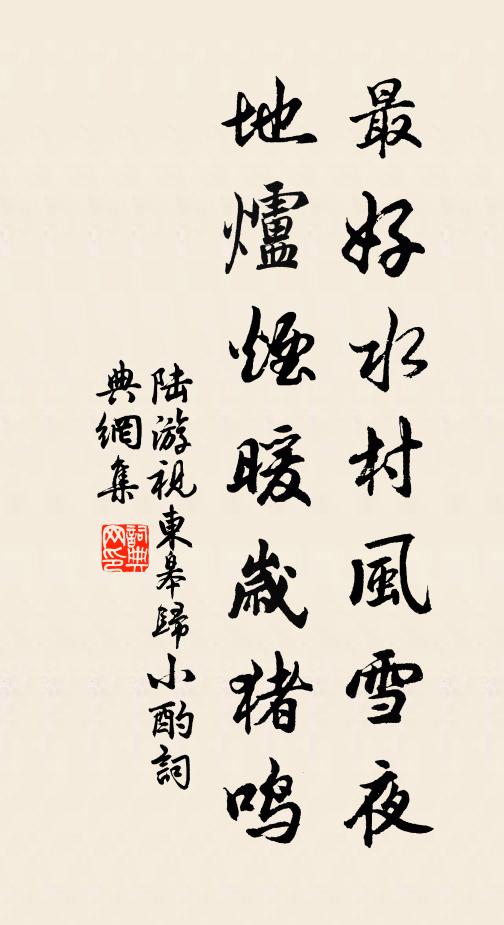 最好水村風雪夜
地爐煙暖歲猪鳴
陸游視東皋歸小酌詞
典網集
詞典網印